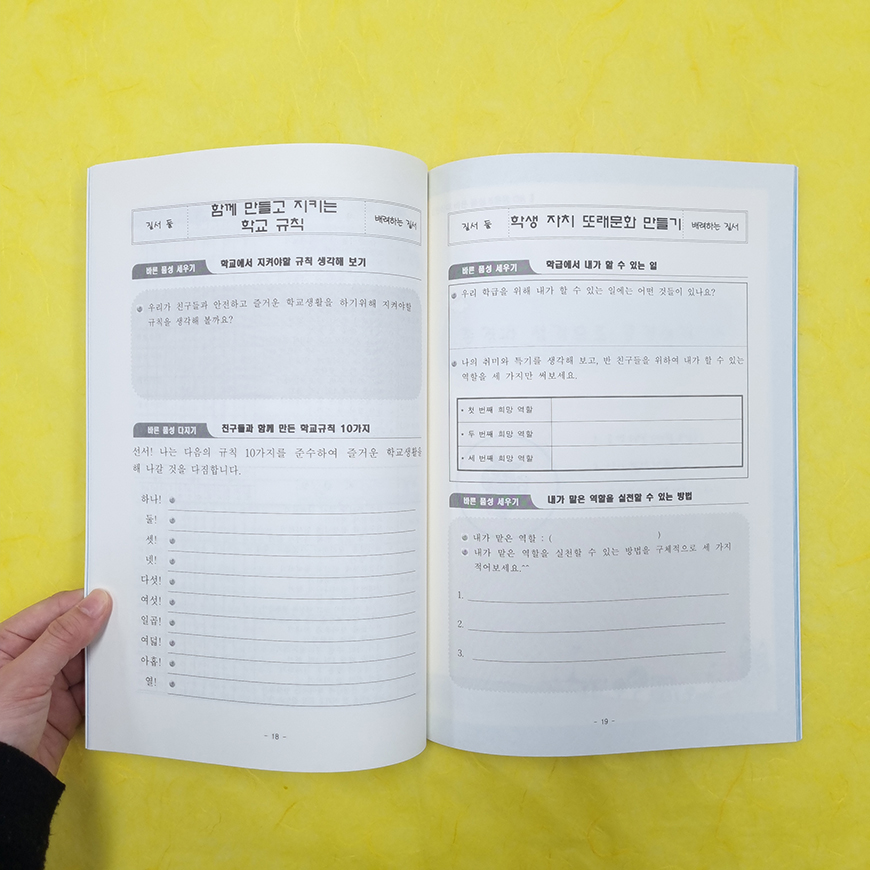 질서 등
함께 만들고 지키는
학교 규칙
배려하는 질서
바른 품성 세우기
학교에서 지켜야할 규칙 생각해 보기
우리가 친구들과 안전하고 즐거운 학교생활을 하기위해 지켜야할
규칙을 생각해 볼까요?
바른 품성 다지기
친구들과 함께 만든 학교규칙 10가지
선서! 나는 다음의 규칙 10가지를 준수하여 즐거운 학교생활을
해 나갈 것을 다짐합니다.
하나!
둘!
셋!
넷!
다섯!
여섯!
일곱!
여덟!
아홉!
열!
- 18 -
질서 둘
학생 자치 또래문화 만들기
배려하는 질서
바른 품성 세우기
학급에서 내가 할 수 있는 일
우리 학급을 위해 내가 할 수 있는 일에는 어떤 것들이 있나요?
나의 취미와 특기를 생각해 보고, 반 친구들을 위하여 내가 할 수 있는
역할을 세 가지만 써보세요.
• 첫 번째 희망 역할
• 두 번째 희망 역할
• 세 번째 희망 역할
바른 품성 세우기
내가 맡은 역할을 실천할 수 있는 방법
내가 맡은 역할 : ( )
내가 맡은 역할을 실천할 수 있는 방법을 구체적으로 세 가지
적어보세요.^^
1.
2.
3.
- 19 -